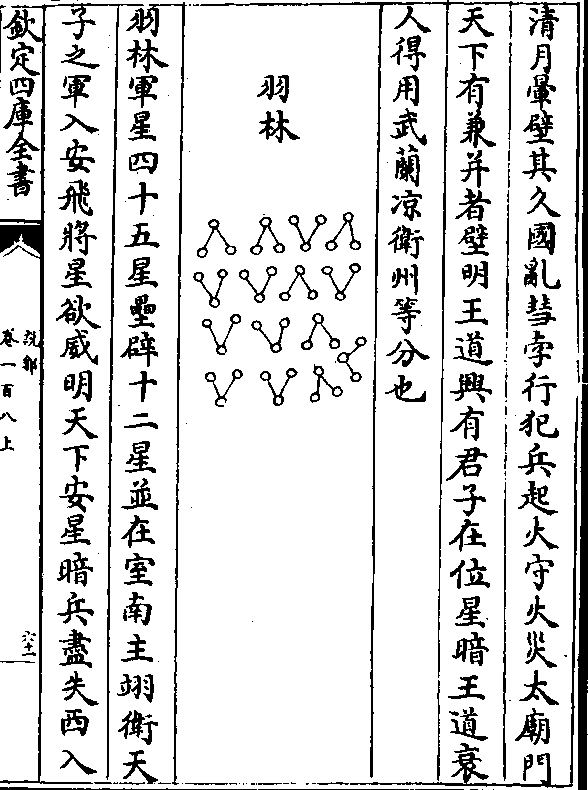 清月暈壁其久國亂彗孛行犯兵起火守火災太廟門
天下有兼并者壁明王道興有君子在位星暗王道衰
人得用武蘭凉衛州等分也
羽林
羽林軍星四十五星壘辟十二星並在室南主翊衛天
子之軍入安飛將星欲威明天下安星暗兵盡失西入
欽定四庫全書
説郛
卷一百八上
六十一